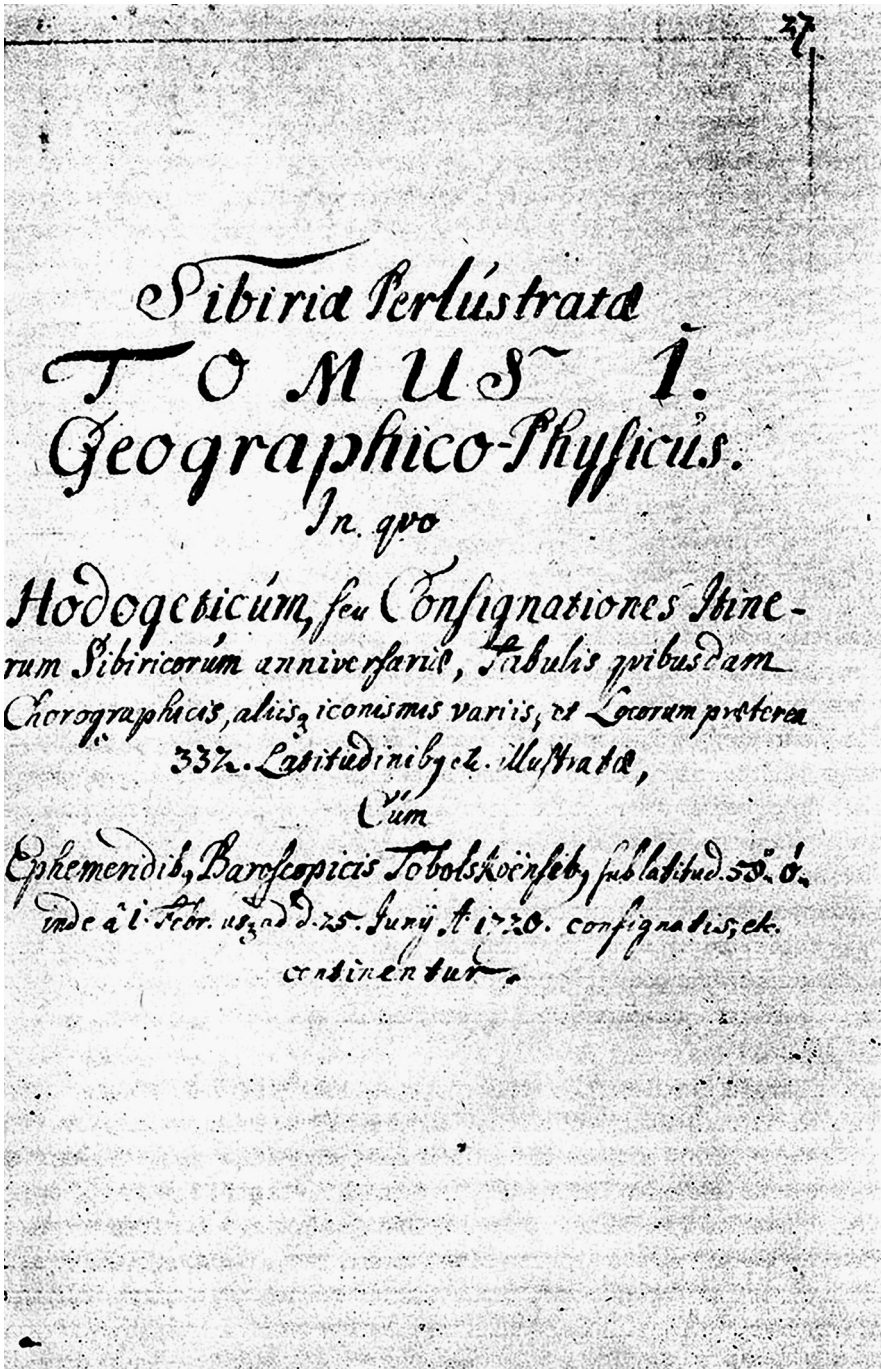 27
Sibiriæ Perlústratæ
TOMUS I.
Geographico-Physicús.
In qvo
Hodogeticúm, seu Consignationes Itine-
rum Sibiricorúm anniversariæ, Tabulis qvibusdam
Chorographicis, aliisq; iconismis variis, et Locorum præterea
332. Latitudinibq etc. illustratæ,
Cúm
Ephemeridibq Baroscopicis Tobolskoënsibq sub latitud. 58°. 0'.
inde â 1. Febr. usq; ad d. 25. Junÿ A 1720. consignatis, etc.
continentur.